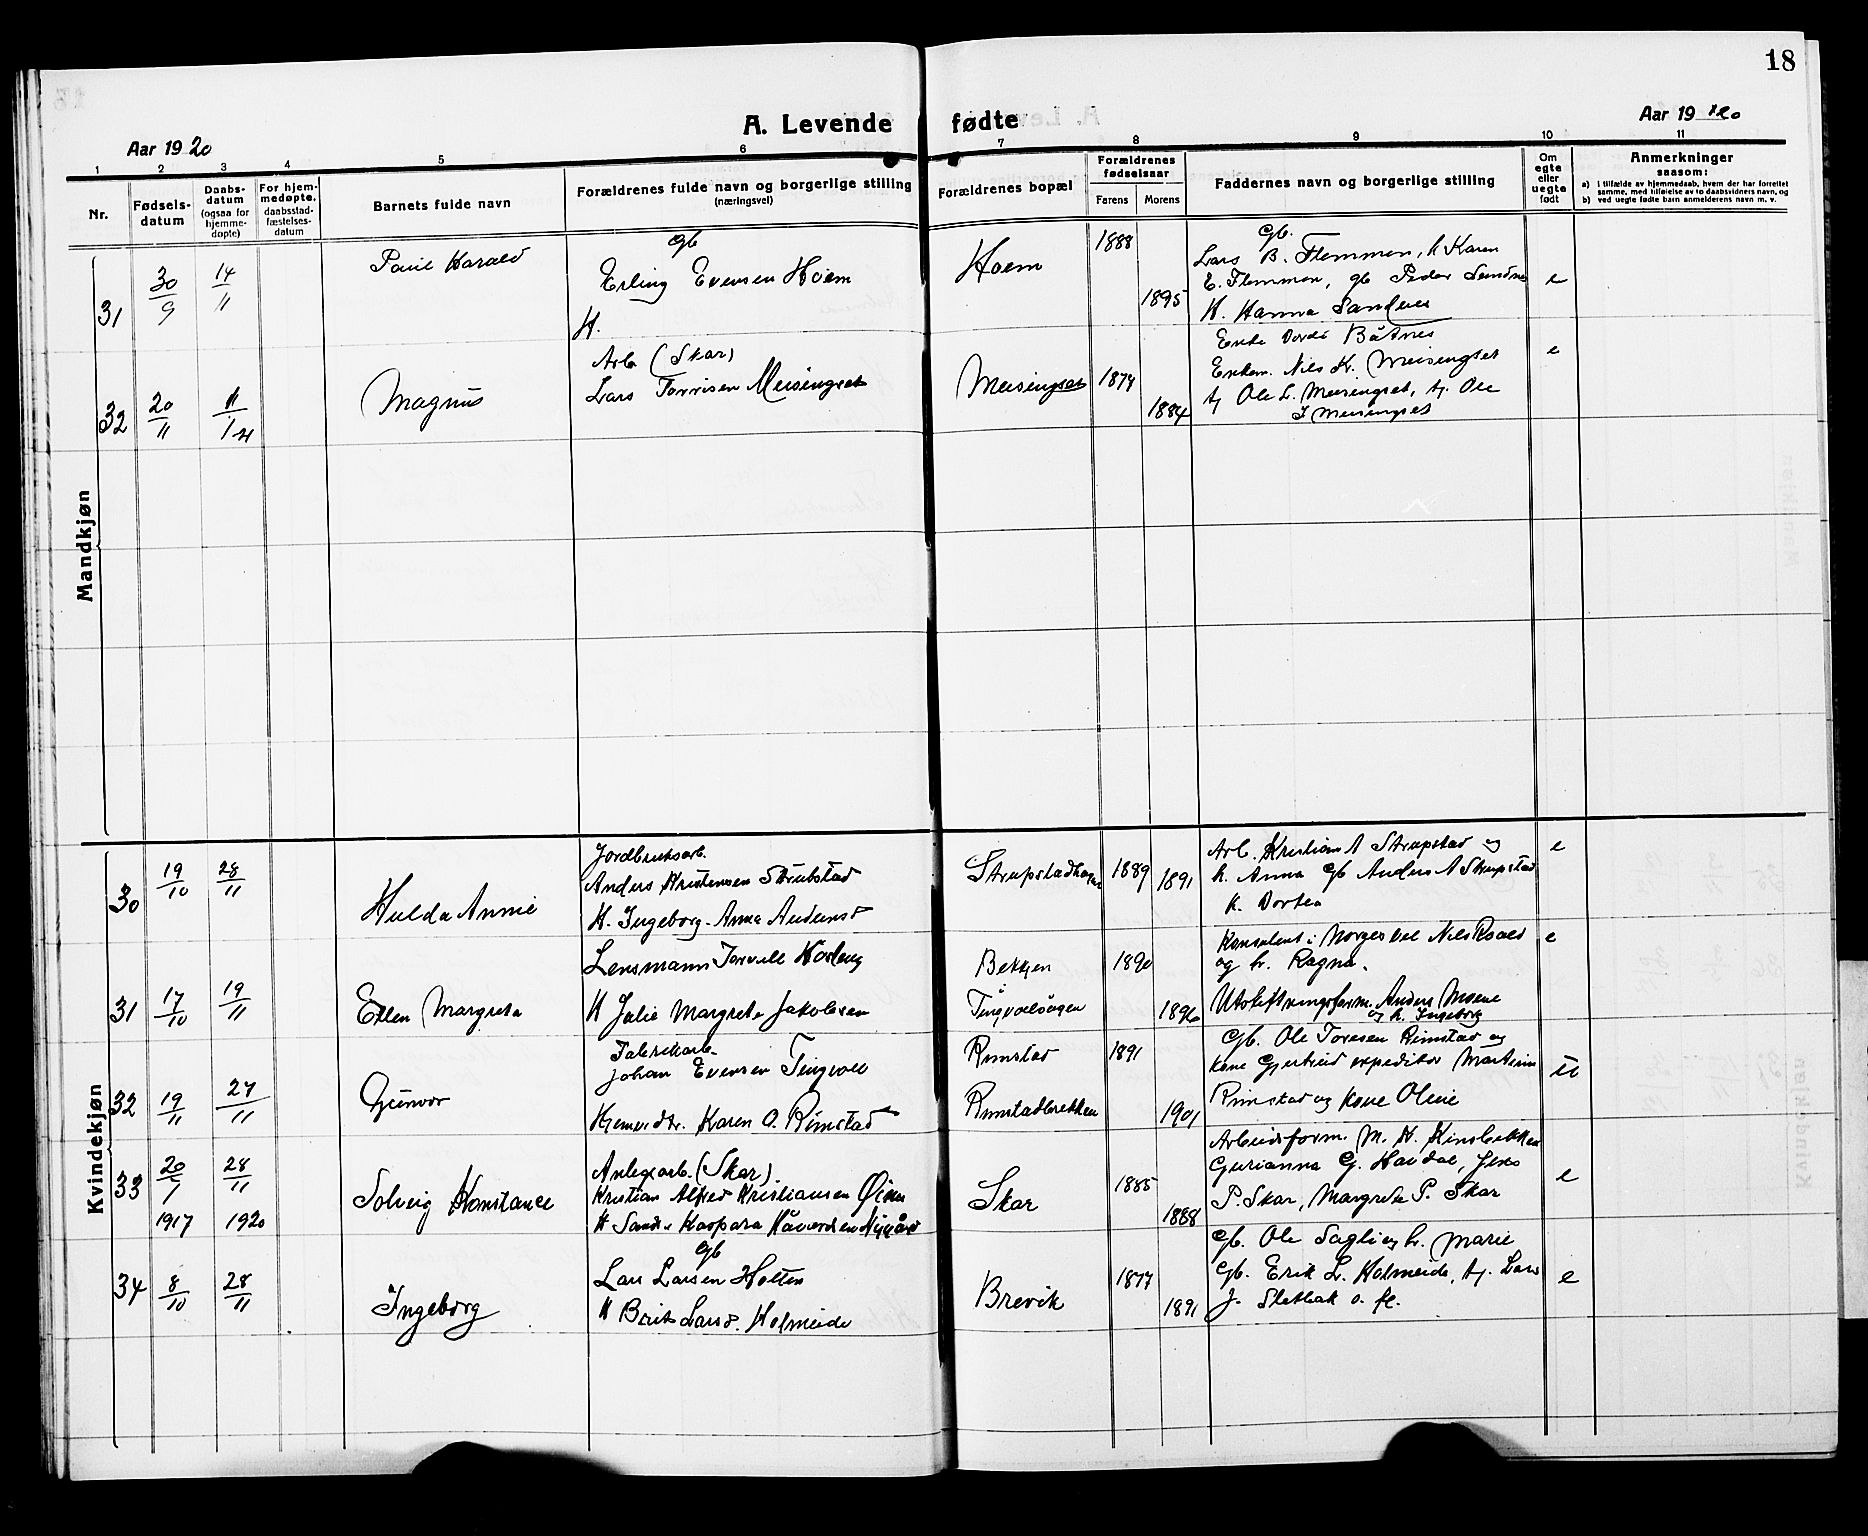 18
A. Levende fødte
Aar 1920
Aar 1920
1 2 3 4 5 6 7 8 9 10 11
Nr.
Fødsels-
datum
Daabs-
datum
(ogsaa for
hjemme-
døpte)
For hjem-
medøpte.
daabsstad-
fæstelses-
datum
Barnets fulde navn
Forældrenes fulde navn og borgerlige stilling
(næringsvei)
Forældrenes bopæl
Forældrenes
fødselsaar
Farens Morens
Faddernes navn og borgerlige stilling
Om
egte
eller
uegte
født
Anmerkninger
saasom:
a) i tilfælde av hjemmedaab, hvem der har forrettet
samme, med tilføielse av to daabsvidners navn, og
b) ved uegte fødte barn anmelderens navn m. v.
Mandkjøn
31 30/9 14/11
Paul Harald
gb
Erling Evensen Hoem
H.
Hoem
1888
1895
gb.
Lars B. Flemmen, h Karen
E. Flemmen, gb Peder Sandnes
H. Hanna Sandnes
e
32 20/11
Magnus
Arb (Skar)
Lars Torrisen Meisingset
Meisingset
1879
1884
Enke Dordi Båtnes
Enkem. Nils K. Meisingset
tj Ole L. Meisingset, tj. Ole
J Meisingset
e
Kvindekjøn
30 19/10 28/11
Hulda Annie
Jordbruksarb.
Anders Kristensen Strupstad
H. Ingeborg Anna Andersd
Strupstadhagen
1889
1891
Arb. Kristian A Strupstad og
k. Anna gb Anders A Strupstad
k. Dortea
e
31 17/10 19/11
Ellen Margrete
Lensmann
H Julie Margrete Jakobsen
Bekken
Tingvollvågen
1890
1896
Konsulent i Norges Vel Nils Roald
og hr. Ragna.
Utskiftningsform. Anders Moene
og h. Ingeborg
e
32 19/11 27/11
Gunvor
Fabrikarb.
Johan Evensen Tingvoll
Hjemmedtr. Karen O. Rimstad
Rimstad
Rimstadbrekken
1891
1901
Gb. Ole Toresen Rimstad og
kone Gjertrud expeditør Martinus
Rimstad og kone Oline
u
33 20/7 28/11
1917 1920
Solveig Konstance
Anlegsarb. (Skar).
Kristian Alfred Kristiansen Øien
Skar
1885
1888
Arbeidsform. M. H. Kinsbekken
Gurianna G. Haudal, Jens
P. Skar, Margrete P. Skar
e
34 8/10 28/11
Ingeborg
gb
Lars Larsen Holten
H Brit Larsd. Holmeide
Brevik
1877
1891
gb. Ole Sagli og hr. Marie
gb. Erik L. Holmeide, tj. Lars
J. Sletbak o. fl.
e